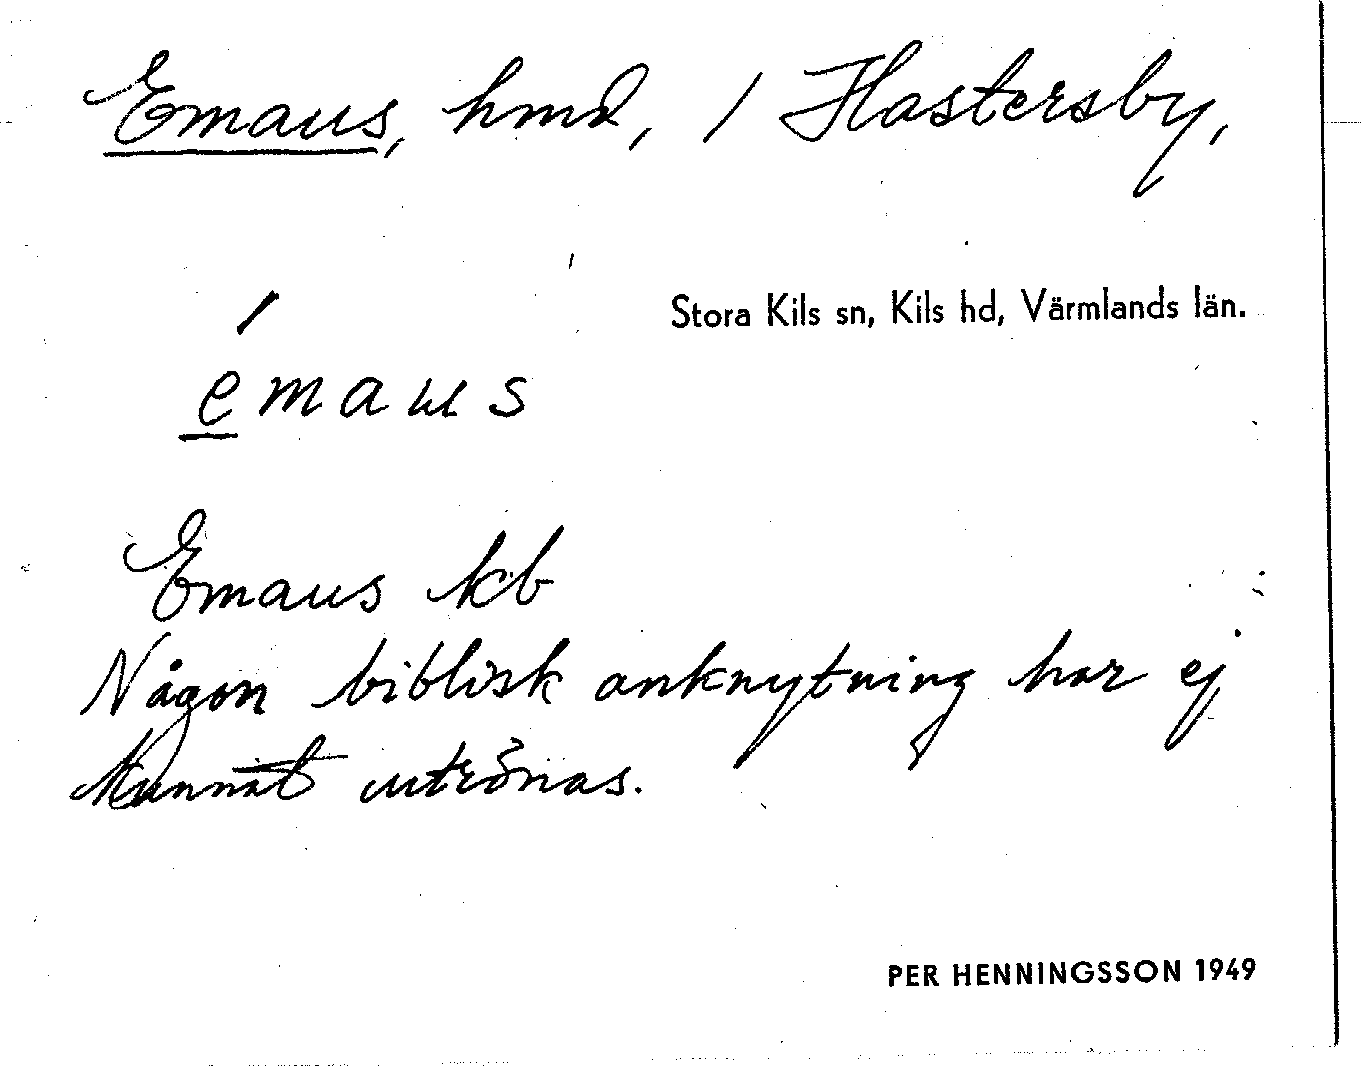 Emaus, hmd, / Hastersby,
Stora Kils sn, Kils hd, Värmlands län.
/
emaus
Emaus kb
Någon biblisk anknytning har ej
kunnat utrönas.
PER HENNINGSSON 1949